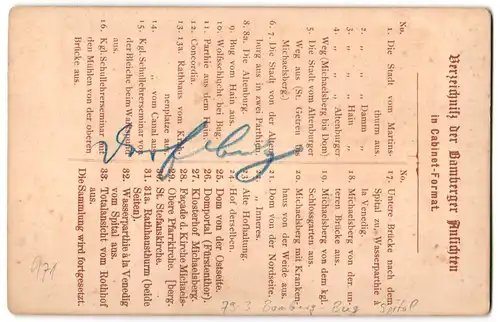 Verzeichniß der Bamberger Ansichten
in Cabinet-Format.
No.
1. Die Stadt vom Martins-
thurm aus.
2. „ „ „ Damm
3. „ „ „ Hain
4. „ „ „ Altenburger
Weg (Michaelsberg bis Dom)
5. Die Stadt vom Altenburger
Weg aus (St. Getreu bis
Michaelsberg).
6. 7. Die Stadt von der Alten-
burg aus in zwei Parthien.
8. 8a. Die Altenburg.
9. Bug vom Hain aus.
10. Wolfsschlucht bei Bug.
11. Parthie aus dem Hain.
12. Concordia.
13. 13a. Rathhaus vom
aus.
14. „ vom Canal aus.
15. Kgl. Schullehrerseminar von
der Bleiche beim
aus.
16. Kgl. Schullehrerseminar mit
den Mühlen von der oberen
Brücke aus.
No.
17. Untere Brücke nach dem
Spital zu, Wasserparthie à
la Venedig.
18. Michaelsberg von der un-
teren Brücke aus.
19. Michaelsberg vom dem kgl.
Schlossgarten aus.
20. Michaelsberg mit Kranken-
haus von der Weide aus.
21. Dom von der Nordseite.
22. „ Inneres.
23. Alte Hofhaltung.
24. Hof derselben.
25. Dom von der Ostseite.
26. Domportal (Fürstenthor).
27. Klosterhof Michaelsberg.
28. Façade d. Kirche Michaels-
29. Obere Pfarrkirche. [berg.
30. St. Stefanskirche.
31. 31a. Rathhausthurm (beide
Seiten).
32. Wasserparthie à la Venedig
vom Spital aus.
33. Totalansicht vom Rothhof
aus.
Die Sammlung wird fortgesetzt.